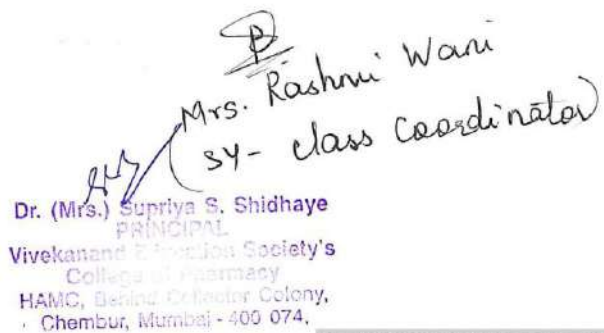 Mrs. Rashmi Wani
(SY- class Coordinator)
Dr. (Mrs.) Supriya S. Shidhaye
PRINCIPAL
Vivekanand Education Society's
College of Pharmacy
HAMC, Behind Collector Colony,
Chembur, Mumbai - 400 074.